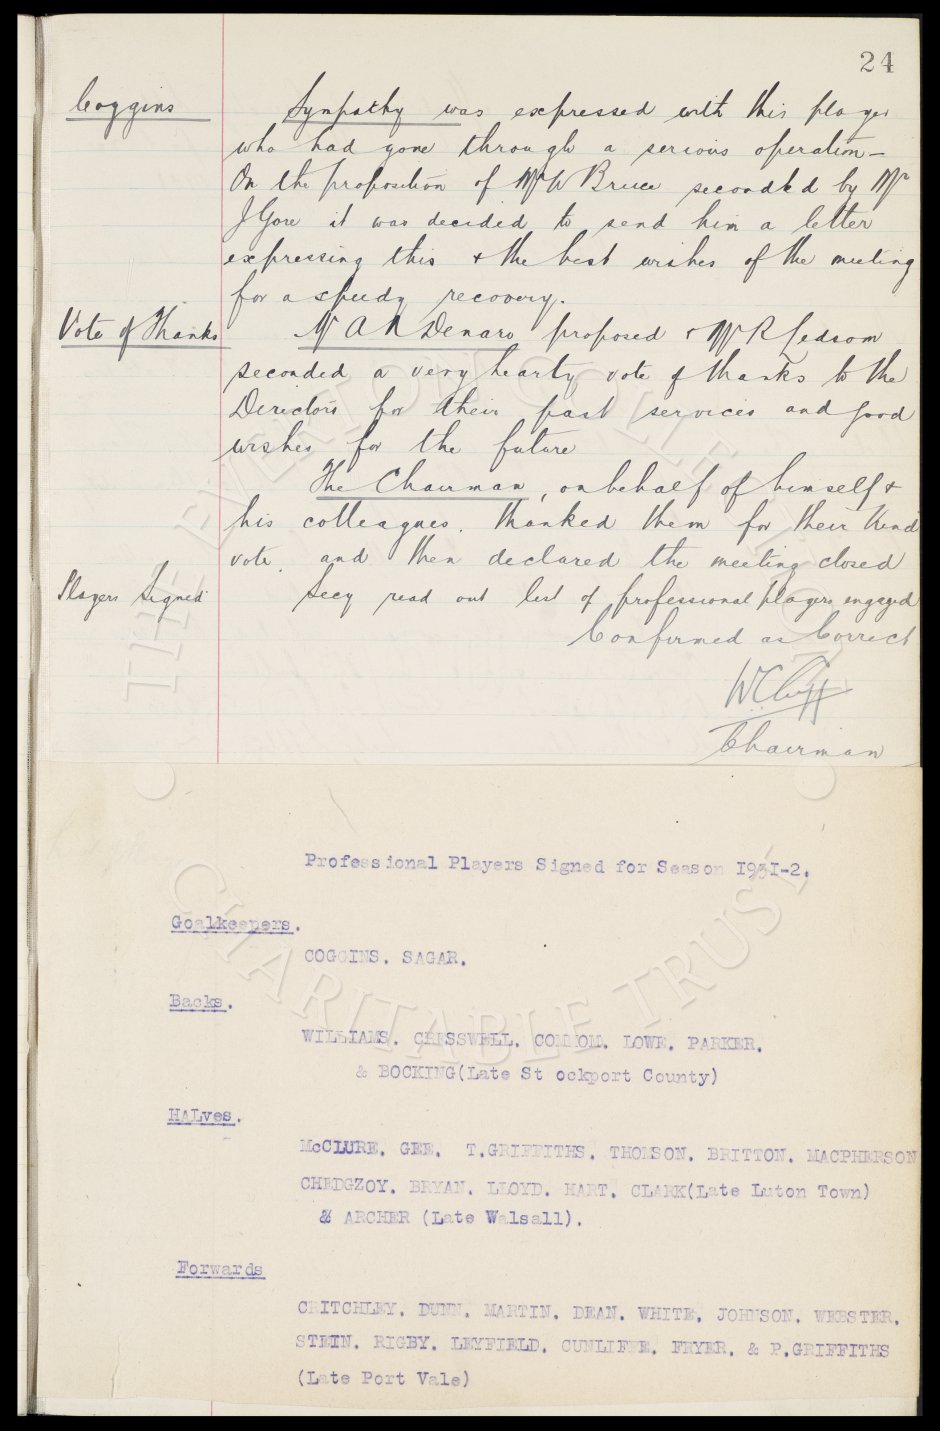 24
Coggins Sympathy was expressed with this player
who had gone through a serious operation —
On the proposition of Mr W Bruce seconded by Mr
J Gore it was decided to send him a letter
expressing this & the best wishes of the meeting
for a speedy recovery.
Vote of Thanks Mr A R Denaro proposed & Mr R Ledsom
seconded a very hearty vote of thanks to the
Directors for their past services and good
wishes for the future
The Chairman, on behalf of himself &
his colleagues, thanked them for their kind
vote, and then declared the meeting closed
Players Signed Secy read out list of professional players engaged
Confirmed as Correct
W C Cuff
Chairman
Professional Players Signed for Season I93I-2.
Goalkeepers.
COGGINS. SAGAR.
Backs.
WILLIAMS. CRESSWELL. COMMON. LOWE. PARKER.
& BOCKING(Late St ockport County)
HALves.
McCLURE. GEE. T.GRIFFITHS. THOMSON. BRITTON. MACPHERSON
CHEDGZOY. BRYAN. LLOYD. HART. CLARK(Late Luton Town)
& ARCHER (Late Walsall).
Forwards
CRITCHLEY. DUNN. MARTIN. DEAN. WHITE. JOHNSON. WEBSTER.
STEIN. RIGBY. LEYFIELD. CUNLIFFE. FRYER. & P.GRIFFITHS
(Late Port Vale)
THE EVERTON COLLECTION
CHARITABLE TRUST